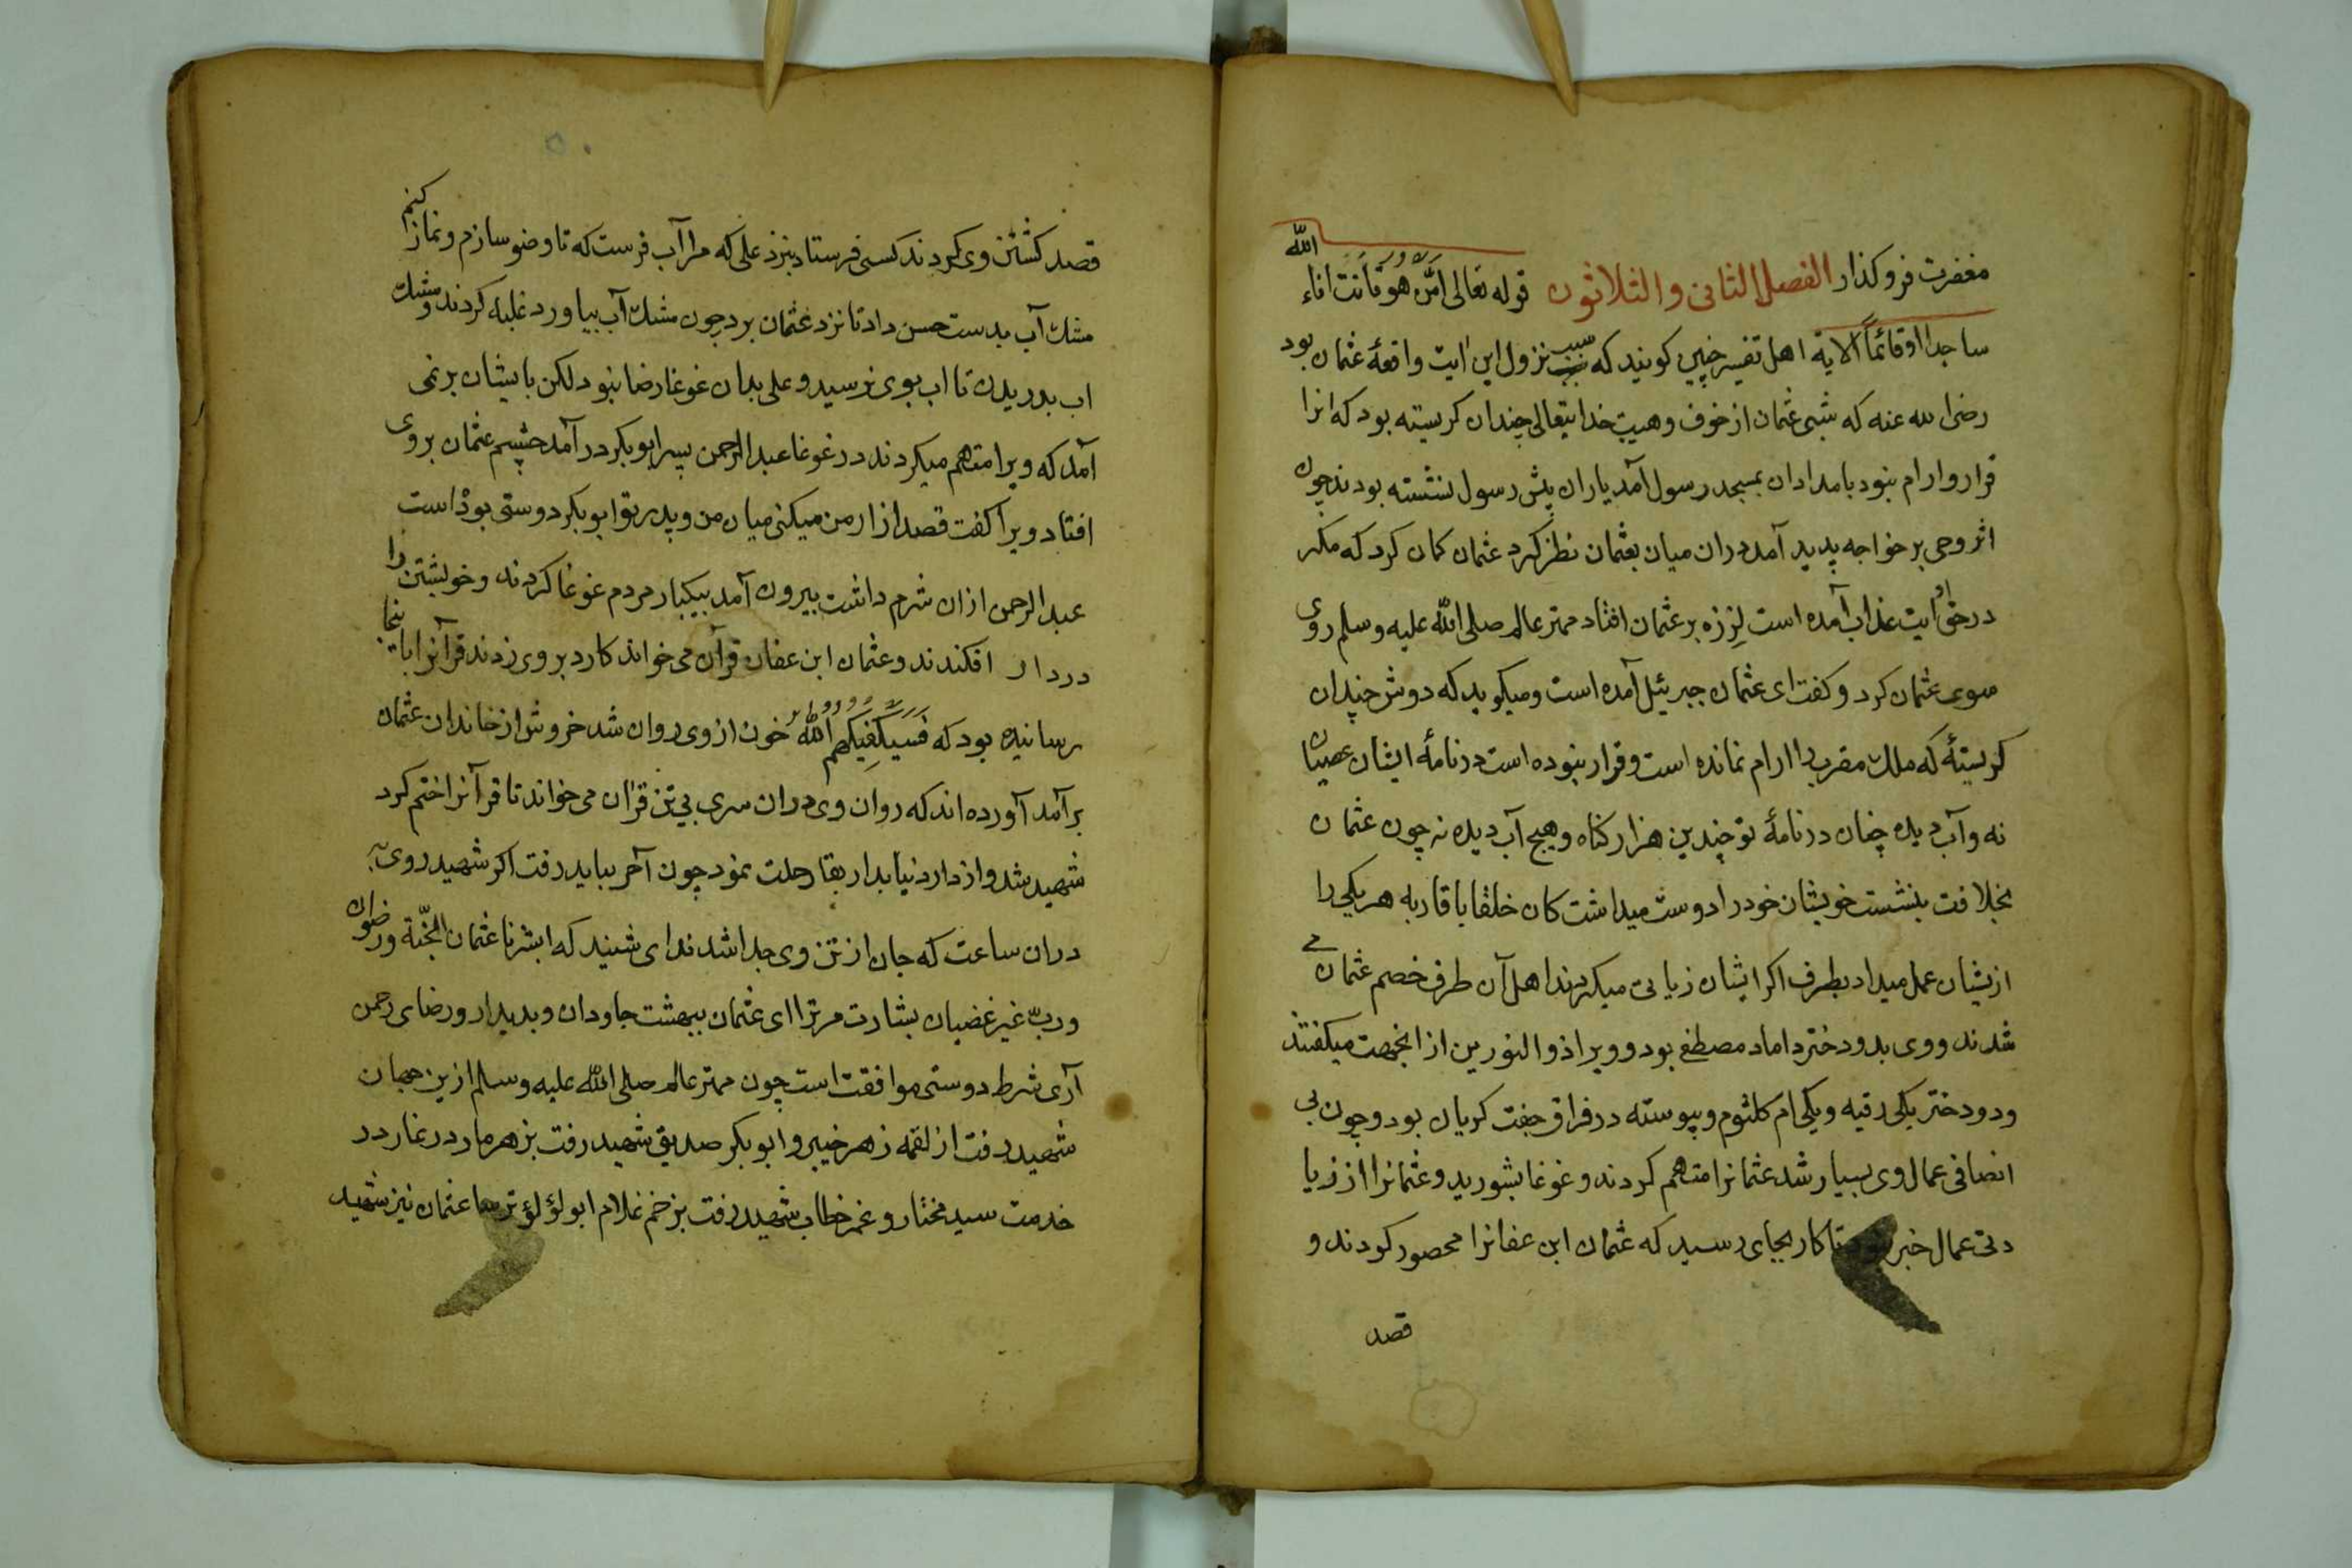 مغفرت فرو کذار الفصل الثانی والثلاثون قوله تعالی امّن هو قانت اناء اللّه
ساجدا او قائماً الایة اهل تفسیر چنین کویند که سبب نزول این ایت واقعهٔ عثمان بود
رضی الله عنه که شبی عثمان از خوف و هیبت خدایتعالی چندان کریسته بود که انرا
قرار وارام نبود بامدادان بمسجد رسول آمد یاران پیش رسول نشسته بودند چون
اثر وحی بر خواجه پدید آمد دران میان بعثمان نظر کرد عثمان کمان کرد که مکر
در حق او ایت عذاب آمده است لرزه بر عثمان افتاد مهتر عالم صلی اللّه علیه وسلم روی
سوی عثمان کرد و کفت ای عثمان جبرئیل آمده است ومیکوید که دوش چندان
کریستهٔ که ملک مقرب را ارام نمانده است و قرار نبوده است در نامهٔ ایشان عصیان
نه و آب دیده چنان در نامهٔ تو چندین هزار کناه و هیچ آب دیده نه چون عثمان
بخلافت بنشست خویشان خود را دوست میداشت کان خلفا باقاربه هر یکی را
ازیشان عمل میداد بطرف اکر ایشان زیانی میکردند اهل آن طرف خصم عثمان می
شدند و وی بدو دختر داماد مصطفی بود و ویرا ذو النورین از انجهت میکفتند
ودو دختر یکی رقیه و یکی ام کلثوم و پیوسته در فراق جفت کریان بود و چون بی
انصافی عمال وی بسیار شد عثمانرا متهم کردند و غوغا بشورید و عثمانرا از زیا
دتی عمال خبر نبود تا کار بجای رسید که عثمان ابن عفانرا محصور کردند و
قصد
قصد کشتن وی کردند کسی فرستاد بنزد علی که مرا آب فرست که تا وضو سازم و نماز کنم
مشک آب بدست حسن داد تا نزد عثمان برد چون مشک آب بیاورد غلبه کردند و مشک
اب بدریدن تا اب بوی نرسید و علی بدان غوغا رضا نبود لکن بایشان بر نمی
آمد که ویرا متهم میکردند در غوغا عبد الرحمن پسر ابو بکر در آمد چشم عثمان بروی
افتاد ویرا کفت قصد ازار من میکنی میان من و پدر تو ابو بکر دوستی بوذ است
عبد الرحمن ازان شرم داشت بیرون آمد بیکبار مردم غوغا کردند و خویشتن را
دردار افکندند و عثمان ابن عفان قرآن می خواند کارد بروی زدند قرآنرا باینجا
رسانیده بود که فَسَیَکْفِیکَهُمُ اللّهُ خون از وی روان شد خروش از خاندان عثمان
بر آمد آورده اند که روان وی دران سری بی تن قران می خواند تا قرآنرا ختم کرد
شهید شد و از دار دنیا بدار بقا رحلت نمود چون آخر بباید رفت اکر شهید روی به
دران ساعت که جان از تن وی جدا شد ندای شنید که ابشر یا عثمان الجنّة ورضوان
وربّ غیر غضبان بشارت مر ترا ای عثمان ببهشت جاودان و بدیدار و رضای رحمن
آری شرط دوستی موافقت است چون مهتر عالم صلی اللّه علیه وسلم ازین جهان
شهید رفت از لقمه زهر خیبر و ابو بکر صدیق شهید رفت بزهر مار در غار در
خدمت سید مختار و عمر خطاب شهید رفت بزخم غلام ابو لؤلؤ ترسا عثمان نیز شهید